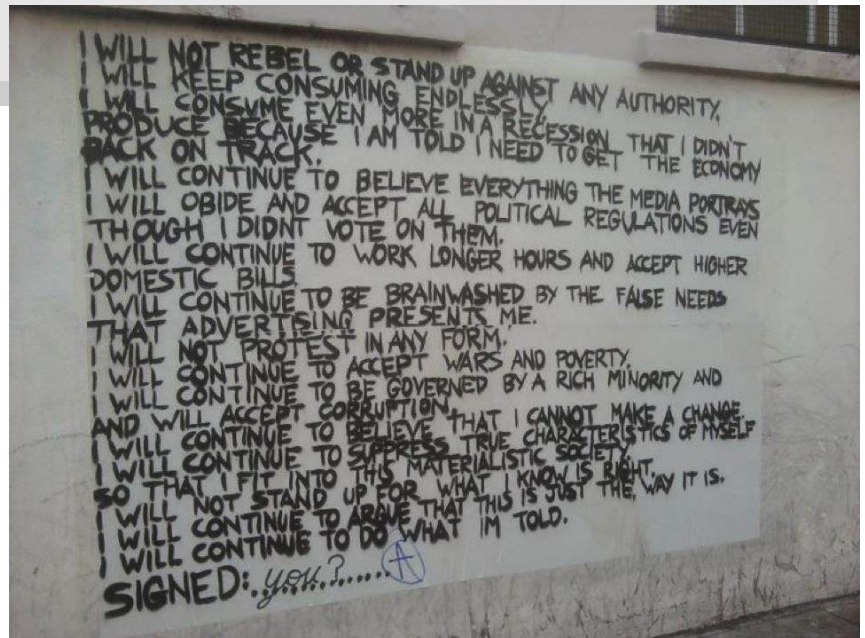 I WILL NOT REBEL OR STAND UP AGAINST ANY AUTHORITY.
I WILL KEEP CONSUMING ENDLESSLY.
I WILL CONSUME EVEN MORE IN A RECESSION THAT I DIDN'T
PRODUCE BECAUSE I AM TOLD I NEED TO GET THE ECONOMY
BACK ON TRACK.
I WILL CONTINUE TO BELIEVE EVERYTHING THE MEDIA PORTRAYS
I WILL OBIDE AND ACCEPT ALL POLITICAL REGULATIONS EVEN
THOUGH I DIDNT VOTE ON THEM.
I WILL CONTINUE TO WORK LONGER HOURS AND ACCEPT HIGHER
DOMESTIC BILLS
I WILL CONTINUE TO BE BRAINWASHED BY THE FALSE NEEDS
THAT ADVERTISING PRESENTS ME.
I WILL NOT PROTEST IN ANY FORM.
I WILL CONTINUE TO ACCEPT WARS AND POVERTY.
I WILL CONTINUE TO BE GOVERNED BY A RICH MINORITY AND
AND WILL ACCEPT CORRUPTION.
I WILL CONTINUE TO BELIEVE THAT I CANNOT MAKE A CHANGE.
I WILL CONTINUE TO SUPPRESS TRUE CHARACTERISTICS OF MYSELF
SO THAT I FIT INTO THIS MATERIALISTIC SOCIETY.
I WILL NOT STAND UP FOR WHAT I KNOW IS RIGHT.
I WILL CONTINUE TO ARGUE THAT THIS IS JUST THE WAY IT IS.
I WILL CONTINUE TO DO WHAT IM TOLD.
SIGNED: you?........ A